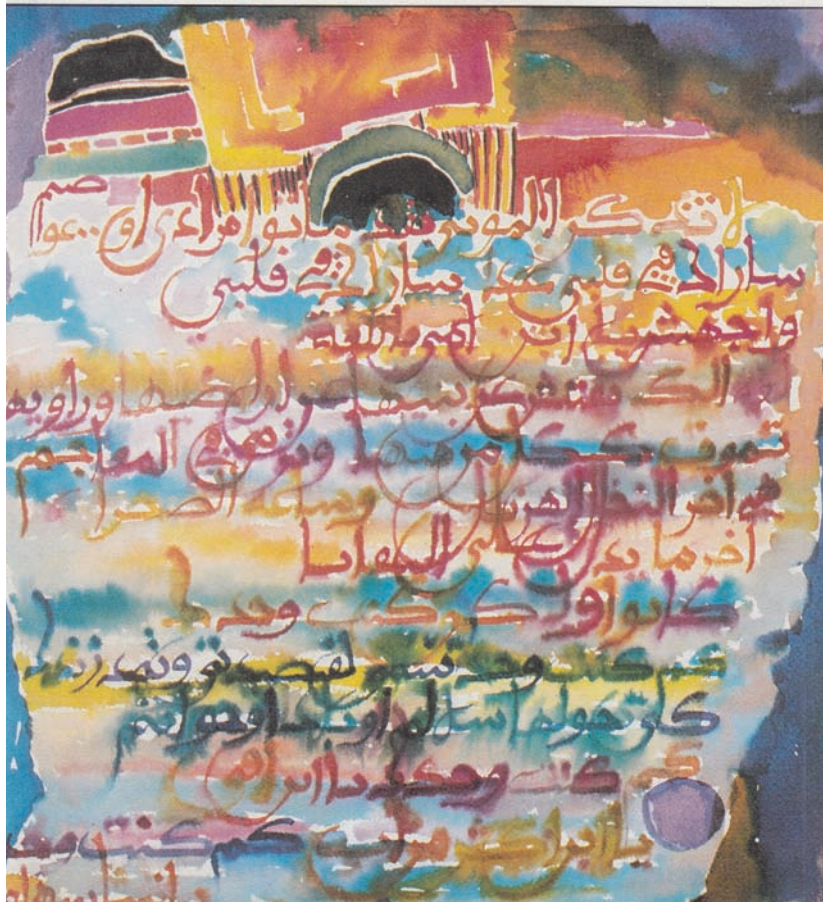 لا تذكر الموتى فقد ماتوا فرادى او .. عواصم
سأراك في قلبي غدا سأراك في قلبي
واجهش يا ابن امي باللغة
لغة تفتش عن بنيها عن اراضيها وراويها
تموت ككل من فيها وترمى في المعاجم
هي اخر النخل الهزيل وساعة الصحراء
اخر ما يدل على البقايا
كانوا ولكن كنت وحدك
كم كنت وحدك تنتمي لقصيدتي وتمد زندك
كي تحولها سلالم او بلادا او خواتم
كم كنت وحدك يا ابن امي
يا ابن اكثر من أب كم كنت وحدك